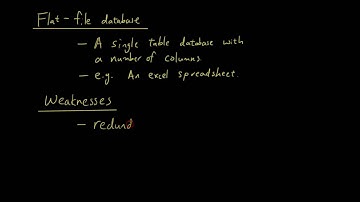 Flat-file database
- A single table database with
a number of columns
- e.g. An excel spreadsheet.
Weaknesses
- redund